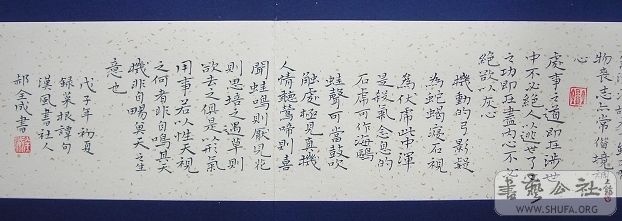 物喪志亦常借境調
心
處事之道即在涉世
中不必絕人逃世了
之功即在盡內心不必
絕欲以灰心
機動的弓影疑
為蛇蝎寢石視
為伏虎此中渾
是殺氣念息的
石虎可作海鷗
蛙聲可當鼓吹
觸處俱見真機
人情聽鶯啼則喜
聞蛙鳴則厭見花
則思培之遇草則
欲去之俱是以形氣
用事若以性天視
之何者非自鳴其天
機非自暢其天之生
意也
戊子年初夏
錄菜根譚句
漢風書社人
郝全成書
書藝公社
WWW.SHUFA.ORG